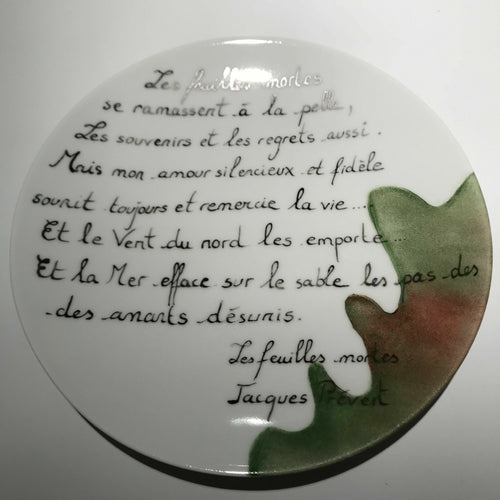 Les feuilles mortes
se ramassent à la pelle,
Les souvenirs et les regrets aussi.
Mais mon amour silencieux et fidèle
sourit toujours et remercie la vie...
Et le Vent du nord les emporte...
Et la Mer efface sur le sable les pas des
des amants désunis.
Les feuilles mortes
Jacques Prévert